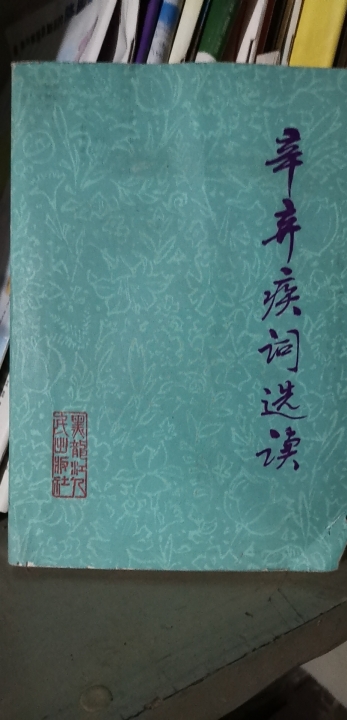 辛弃疾词选读
黑龙江人
民出版社